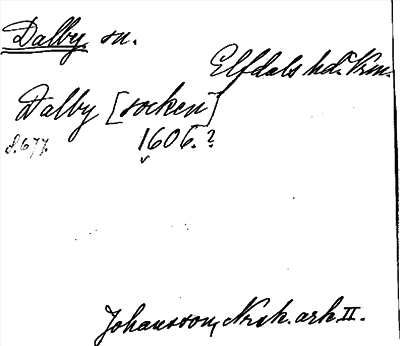 Dalby sn.
Elfdals hd. Vrm.
Dalby [socken]
s. 677. 1606.?
Johansson, Nrsk. ark II.